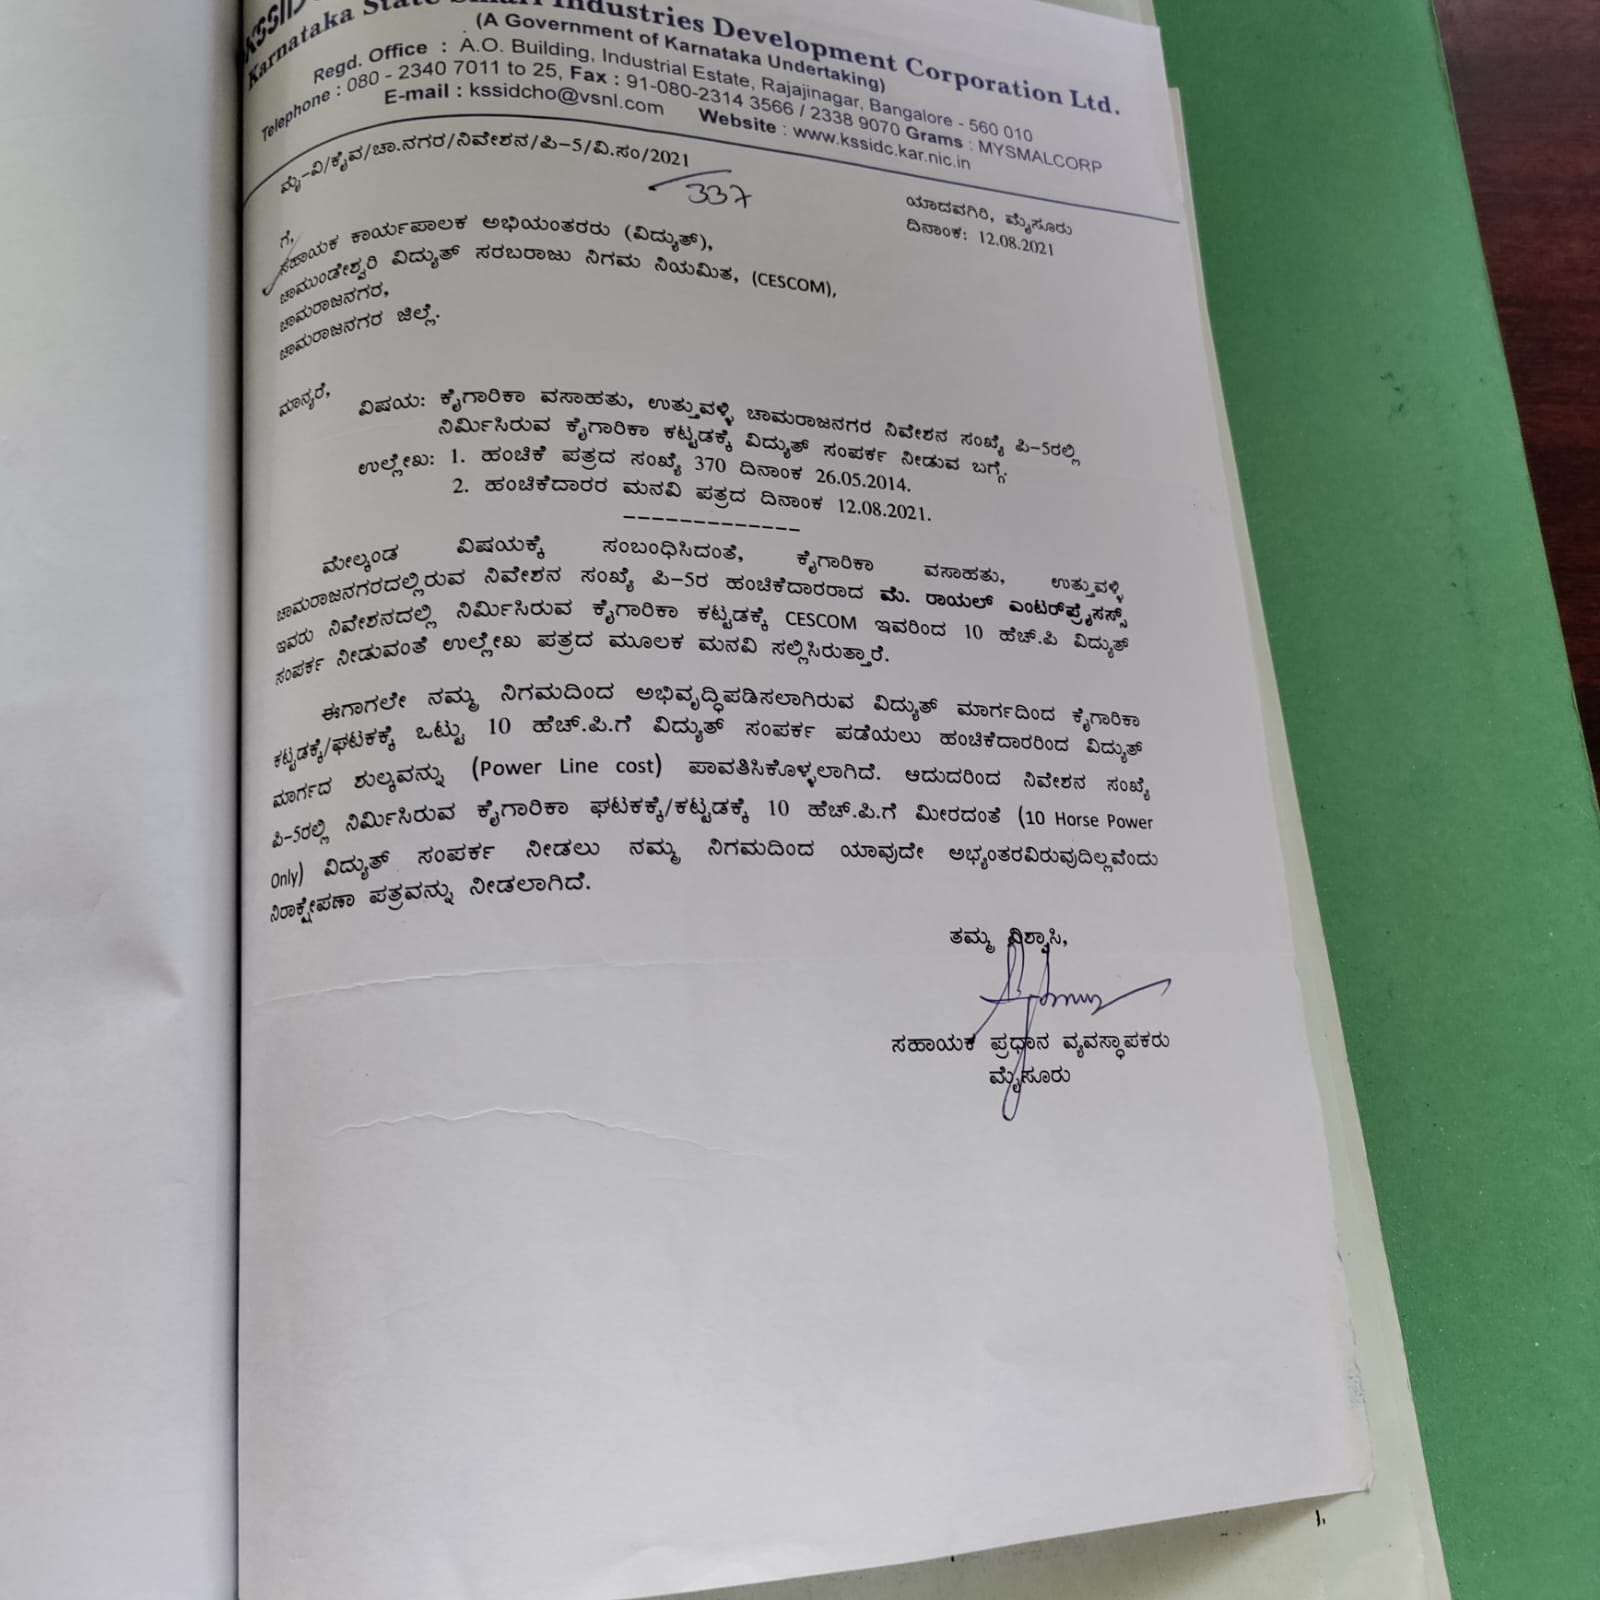 KSSIDC
Karnataka State Small Industries Development Corporation Ltd.
(A Government of Karnataka Undertaking)
Regd. Office : A.O. Building, Industrial Estate, Rajajinagar, Bangalore - 560 010
Telephone : 080 - 2340 7011 to 25, Fax : 91-080-2314 3566 / 2338 9070 Grams : MYSMALCORP
E-mail : kssidcho@vsnl.com Website : www.kssidc.kar.nic.in
ಮೈ-ವಿ/ಕೈವ/ಚಾ.ನಗರ/ನಿವೇಶನ/ಪಿ-5/ವಿ.ಸಂ/2021
337
ಯಾದವಗಿರಿ, ಮೈಸೂರು
ದಿನಾಂಕ: 12.08.2021
ಗೆ,
ಸಹಾಯಕ ಕಾರ್ಯಪಾಲಕ ಅಭಿಯಂತರರು (ವಿದ್ಯುತ್),
ಚಾಮುಂಡೇಶ್ವರಿ ವಿದ್ಯುತ್ ಸರಬರಾಜು ನಿಗಮ ನಿಯಮಿತ, (CESCOM),
ಚಾಮರಾಜನಗರ,
ಚಾಮರಾಜನಗರ ಜಿಲ್ಲೆ.
ಮಾನ್ಯರೆ,
ವಿಷಯ: ಕೈಗಾರಿಕಾ ವಸಾಹತು, ಉತ್ತುವಳ್ಳಿ ಚಾಮರಾಜನಗರ ನಿವೇಶನ ಸಂಖ್ಯೆ ಪಿ-5ರಲ್ಲಿ
ನಿರ್ಮಿಸಿರುವ ಕೈಗಾರಿಕಾ ಕಟ್ಟಡಕ್ಕೆ ವಿದ್ಯುತ್ ಸಂಪರ್ಕ ನೀಡುವ ಬಗ್ಗೆ.
ಉಲ್ಲೇಖ: 1. ಹಂಚಿಕೆ ಪತ್ರದ ಸಂಖ್ಯೆ 370 ದಿನಾಂಕ 26.05.2014.
2. ಹಂಚಿಕೆದಾರರ ಮನವಿ ಪತ್ರದ ದಿನಾಂಕ 12.08.2021.
-------------
ಮೇಲ್ಕಂಡ ವಿಷಯಕ್ಕೆ ಸಂಬಂಧಿಸಿದಂತೆ, ಕೈಗಾರಿಕಾ ವಸಾಹತು, ಉತ್ತುವಳ್ಳಿ
ಚಾಮರಾಜನಗರದಲ್ಲಿರುವ ನಿವೇಶನ ಸಂಖ್ಯೆ ಪಿ-5ರ ಹಂಚಿಕೆದಾರರಾದ ಮೆ. ರಾಯಲ್ ಎಂಟರ್‌ಪ್ರೈಸಸ್ಸ್
ಇವರು ನಿವೇಶನದಲ್ಲಿ ನಿರ್ಮಿಸಿರುವ ಕೈಗಾರಿಕಾ ಕಟ್ಟಡಕ್ಕೆ CESCOM ಇವರಿಂದ 10 ಹೆಚ್.ಪಿ ವಿದ್ಯುತ್
ಸಂಪರ್ಕ ನೀಡುವಂತೆ ಉಲ್ಲೇಖ ಪತ್ರದ ಮೂಲಕ ಮನವಿ ಸಲ್ಲಿಸಿರುತ್ತಾರೆ.
ಈಗಾಗಲೇ ನಮ್ಮ ನಿಗಮದಿಂದ ಅಭಿವೃದ್ಧಿಪಡಿಸಲಾಗಿರುವ ವಿದ್ಯುತ್ ಮಾರ್ಗದಿಂದ ಕೈಗಾರಿಕಾ
ಕಟ್ಟಡಕ್ಕೆ/ಘಟಕಕ್ಕೆ ಒಟ್ಟು 10 ಹೆಚ್.ಪಿ.ಗೆ ವಿದ್ಯುತ್ ಸಂಪರ್ಕ ಪಡೆಯಲು ಹಂಚಿಕೆದಾರರಿಂದ ವಿದ್ಯುತ್
ಮಾರ್ಗದ ಶುಲ್ಕವನ್ನು (Power Line cost) ಪಾವತಿಸಿಕೊಳ್ಳಲಾಗಿದೆ. ಆದುದರಿಂದ ನಿವೇಶನ ಸಂಖ್ಯೆ
ಪಿ-5ರಲ್ಲಿ ನಿರ್ಮಿಸಿರುವ ಕೈಗಾರಿಕಾ ಘಟಕಕ್ಕೆ/ಕಟ್ಟಡಕ್ಕೆ 10 ಹೆಚ್.ಪಿ.ಗೆ ಮೀರದಂತೆ (10 Horse Power
Only) ವಿದ್ಯುತ್ ಸಂಪರ್ಕ ನೀಡಲು ನಮ್ಮ ನಿಗಮದಿಂದ ಯಾವುದೇ ಅಭ್ಯಂತರವಿರುವುದಿಲ್ಲವೆಂದು
ನಿರಾಕ್ಷೇಪಣಾ ಪತ್ರವನ್ನು ನೀಡಲಾಗಿದೆ.
ತಮ್ಮ ವಿಶ್ವಾಸಿ,
ಸಹಾಯಕ ಪ್ರಧಾನ ವ್ಯವಸ್ಥಾಪಕರು
ಮೈಸೂರು